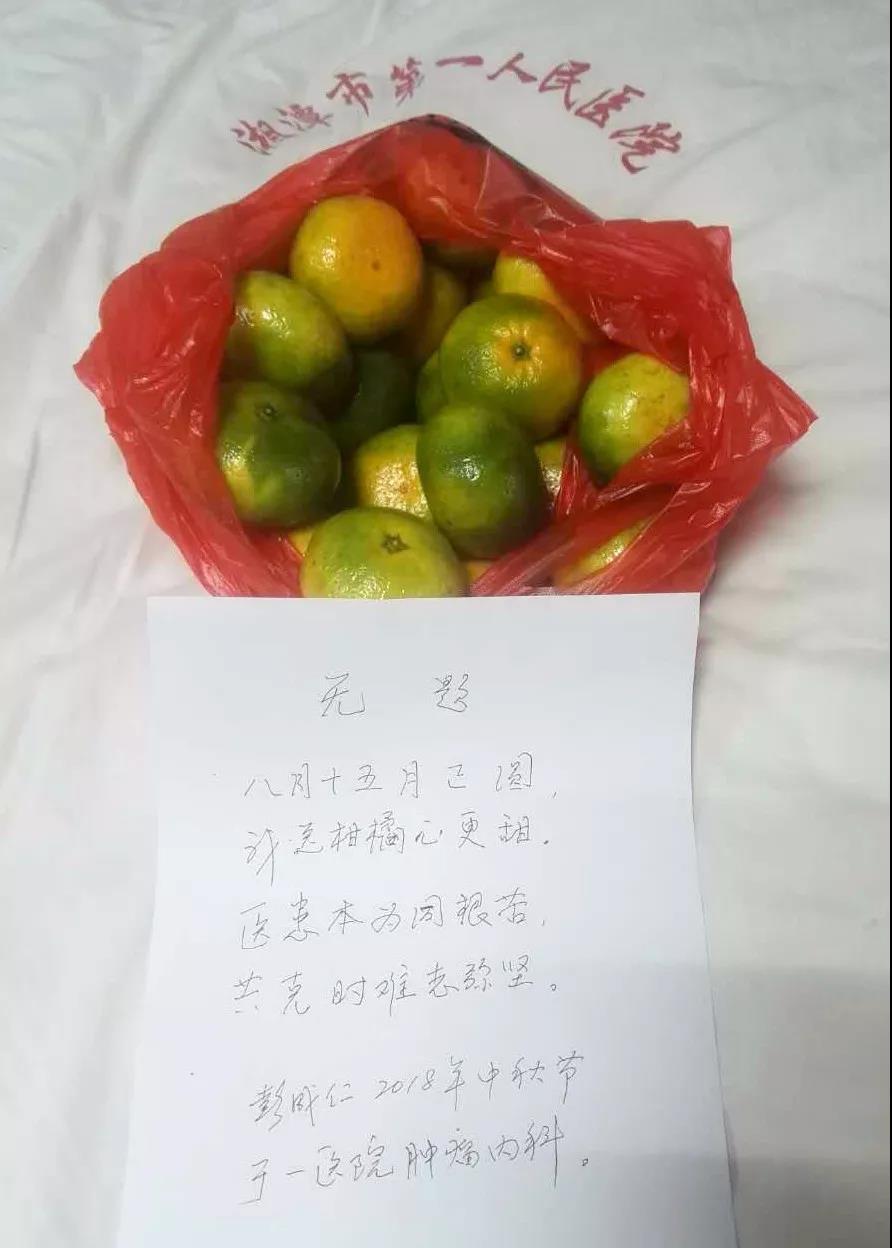 湘潭市第一人民医院
无 题
八月十五月正圆,
柑橘心更甜。
医患本为同苦,
共克时难志弥坚。
彭成仁 2018年中秋节
于一医院肿瘤内科。